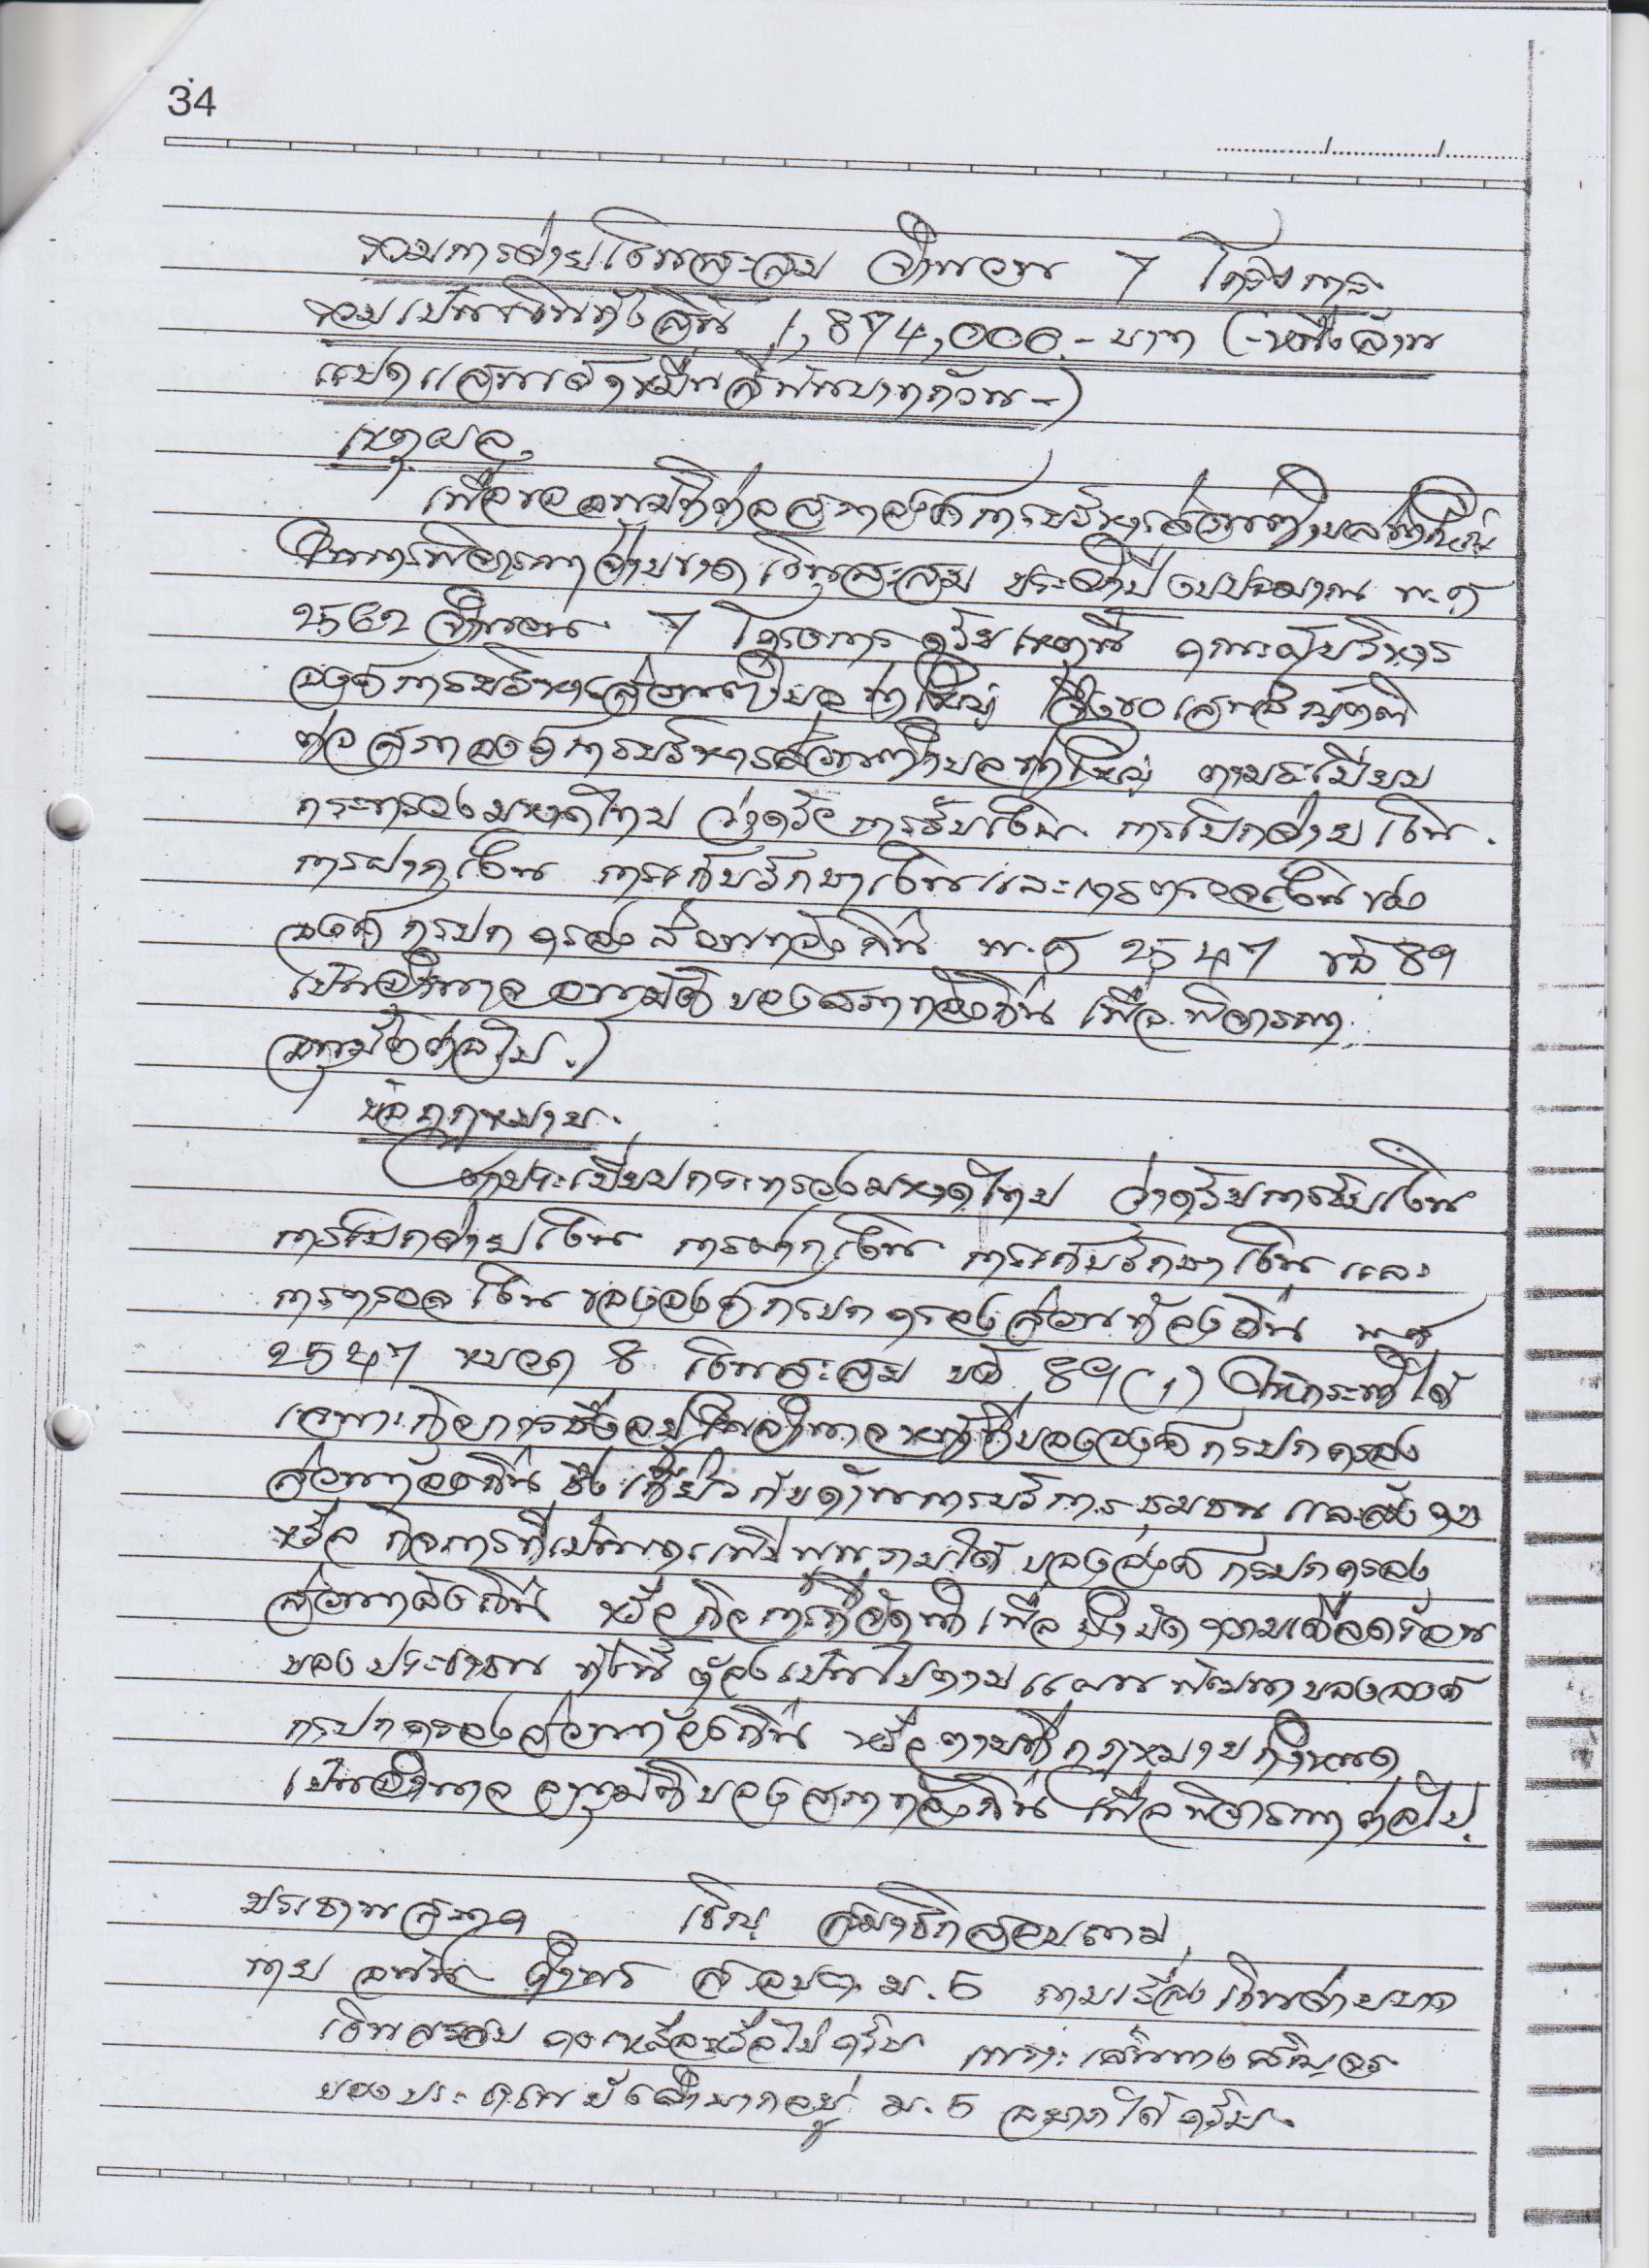 34
รวมการจ่ายเงินสะสม จำนวน 7 โครงการ
รวมเป็นเงินทั้งสิ้น 1,874,000.- บาท (-หนึ่งล้าน
แปดแสนเจ็ดหมื่นสี่พันบาทถ้วน-)
เหตุผล
เพื่อขออนุมัติต่อสภาองค์การบริหารส่วนตำบลท่าใหญ่
ในการพิจารณาจ่ายขาดเงินสะสม ประจำปีงบประมาณ พ.ศ
2562 จำนวน 7 โครงการ ด้วยเหตุนี้ คณะผู้บริหาร
องค์การบริหารส่วนตำบลท่าใหญ่ จึงขอเสนอญัตติ
ต่อสภาองค์การบริหารส่วนตำบลท่าใหญ่ ตามระเบียบ
กระทรวงมหาดไทย ว่าด้วยการรับเงิน การเบิกจ่ายเงิน
การฝากเงิน การเก็บรักษาเงินและการตรวจเงินของ
องค์กรปกครองส่วนท้องถิ่น พ.ศ 2547 ข้อ 89
เป็นอำนาจอนุมัติของสภาท้องถิ่น เพื่อพิจารณา
อนุมัติต่อไป
ข้อกฎหมาย
ตามระเบียบกระทรวงมหาดไทย ว่าด้วยการรับเงิน
การเบิกจ่ายเงิน การฝากเงิน การเก็บรักษาเงินและ
การตรวจเงินขององค์กรปกครองส่วนท้องถิ่น พ.ศ
2547 หมวด 8 เงินสะสม ข้อ 89(1) ให้กระทำได้
เฉพาะกิจการซึ่งอยู่ในอำนาจหน้าที่ขององค์กรปกครอง
ส่วนท้องถิ่น ซึ่งเกี่ยวกับด้านการบริการชุมชนและสังคม
หรือ กิจการที่เป็นการเพิ่มพูนรายได้ขององค์กรปกครอง
ส่วนท้องถิ่น หรือกิจการที่จัดทำเพื่อบำบัดความเดือดร้อน
ของประชาชน ทั้งนี้ต้องเป็นไปตามแผนพัฒนาขององค์
กรปกครองส่วนท้องถิ่น หรือตามที่กฎหมายกำหนด
เป็นอำนาจอนุมัติของสภาท้องถิ่น เพื่อพิจารณาต่อไป
ประธานสภาฯ เชิญ สมาชิกสอบถาม
นาย ส.อบต ม.5 ถามเรื่องเงินจ่ายขาด
เงินสะสม คงเหลือหรือไม่ครับ เพราะเส้นทางสัญจร
ของประชาชนยังลำบากอยู่ ม.5 อยากได้ครับ